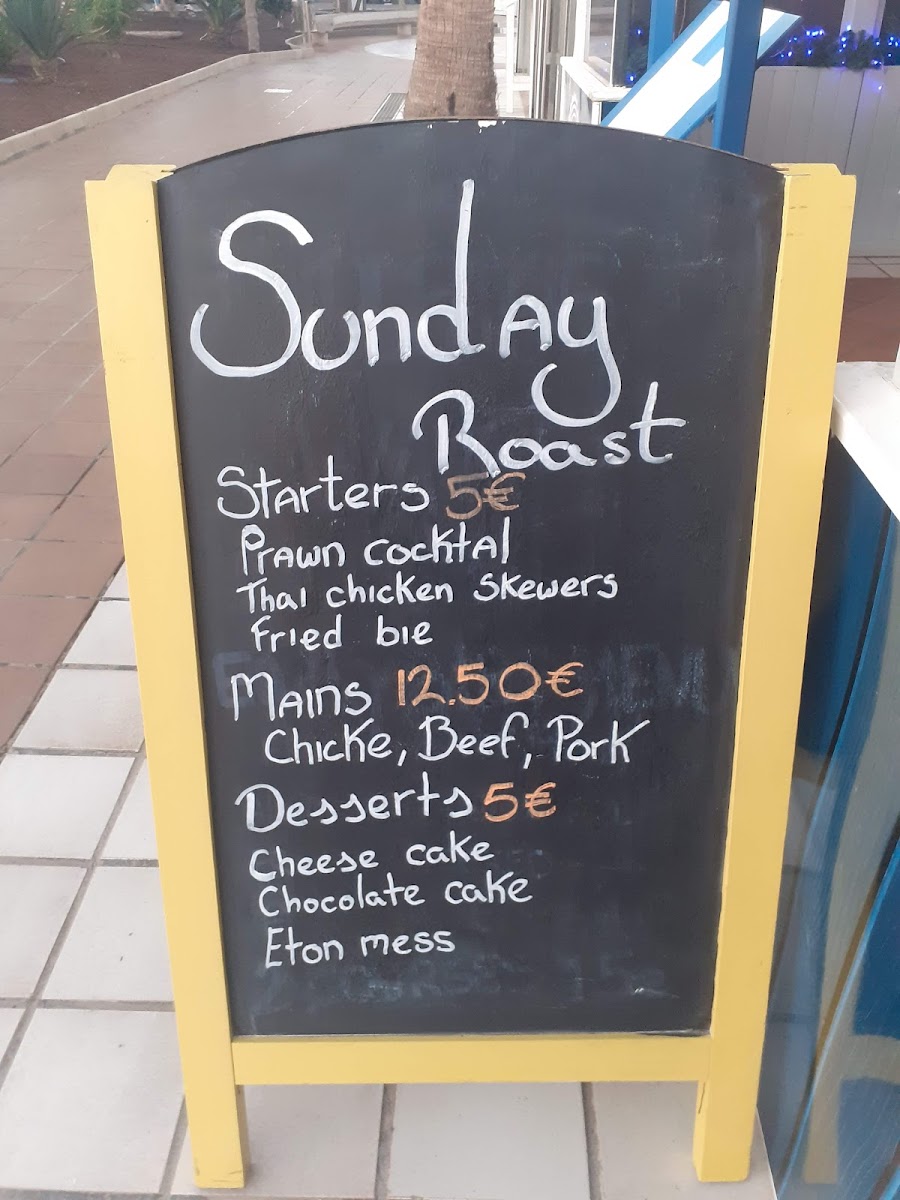 Sunday
Roast
Starters 5€
Prawn cocktal
Thai chicken skewers
Fried bie
Mains 12.50€
Chicke, Beef, Pork
Desserts 5€
Cheese cake
Chocolate cake
Eton mess